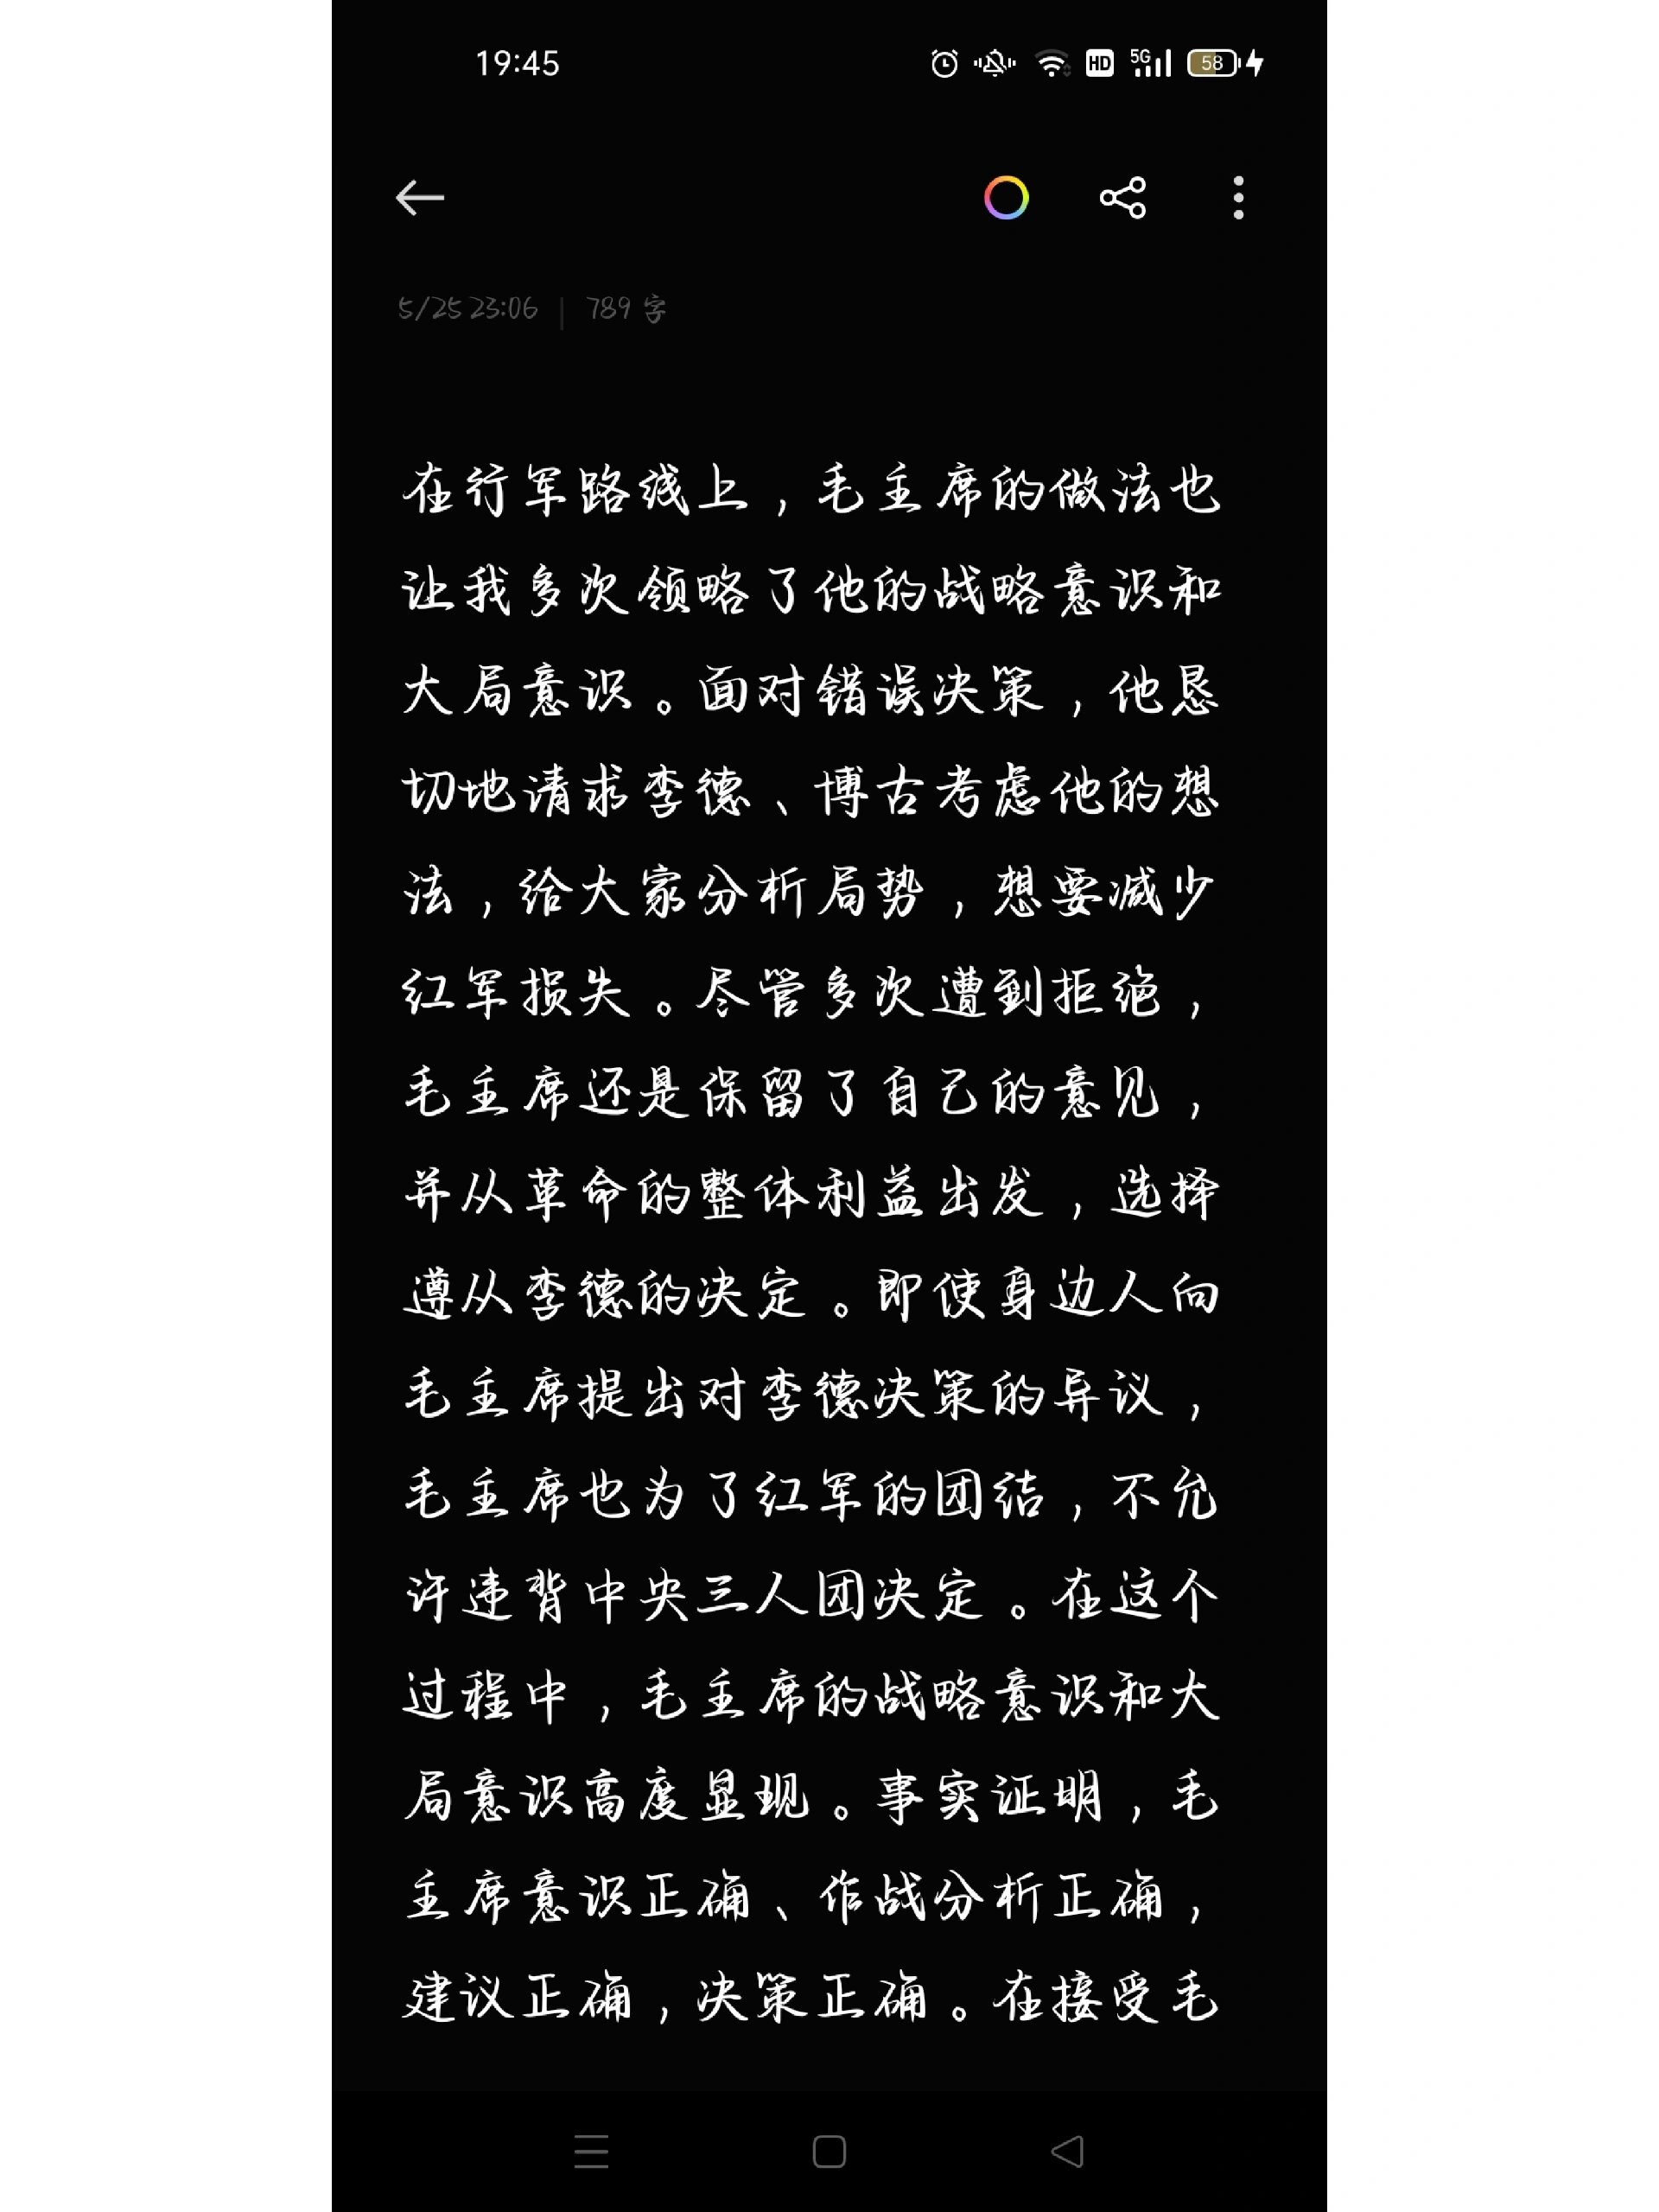 19:45 HD 5G 58
5/25 23:06 | 789 字
在行军路线上，毛主席的做法也
让我多次领略了他的战略意识和
大局意识。面对错误决策，他恳
切地请求李德、博古考虑他的想
法，给大家分析局势，想要减少
红军损失。尽管多次遭到拒绝，
毛主席还是保留了自己的意见，
并从革命的整体利益出发，选择
遵从李德的决定。即使身边人向
毛主席提出对李德决策的异议，
毛主席也为了红军的团结，不允
许违背中央三人团决定。在这个
过程中，毛主席的战略意识和大
局意识高度显现。事实证明，毛
主席意识正确、作战分析正确，
建议正确，决策正确。在接受毛